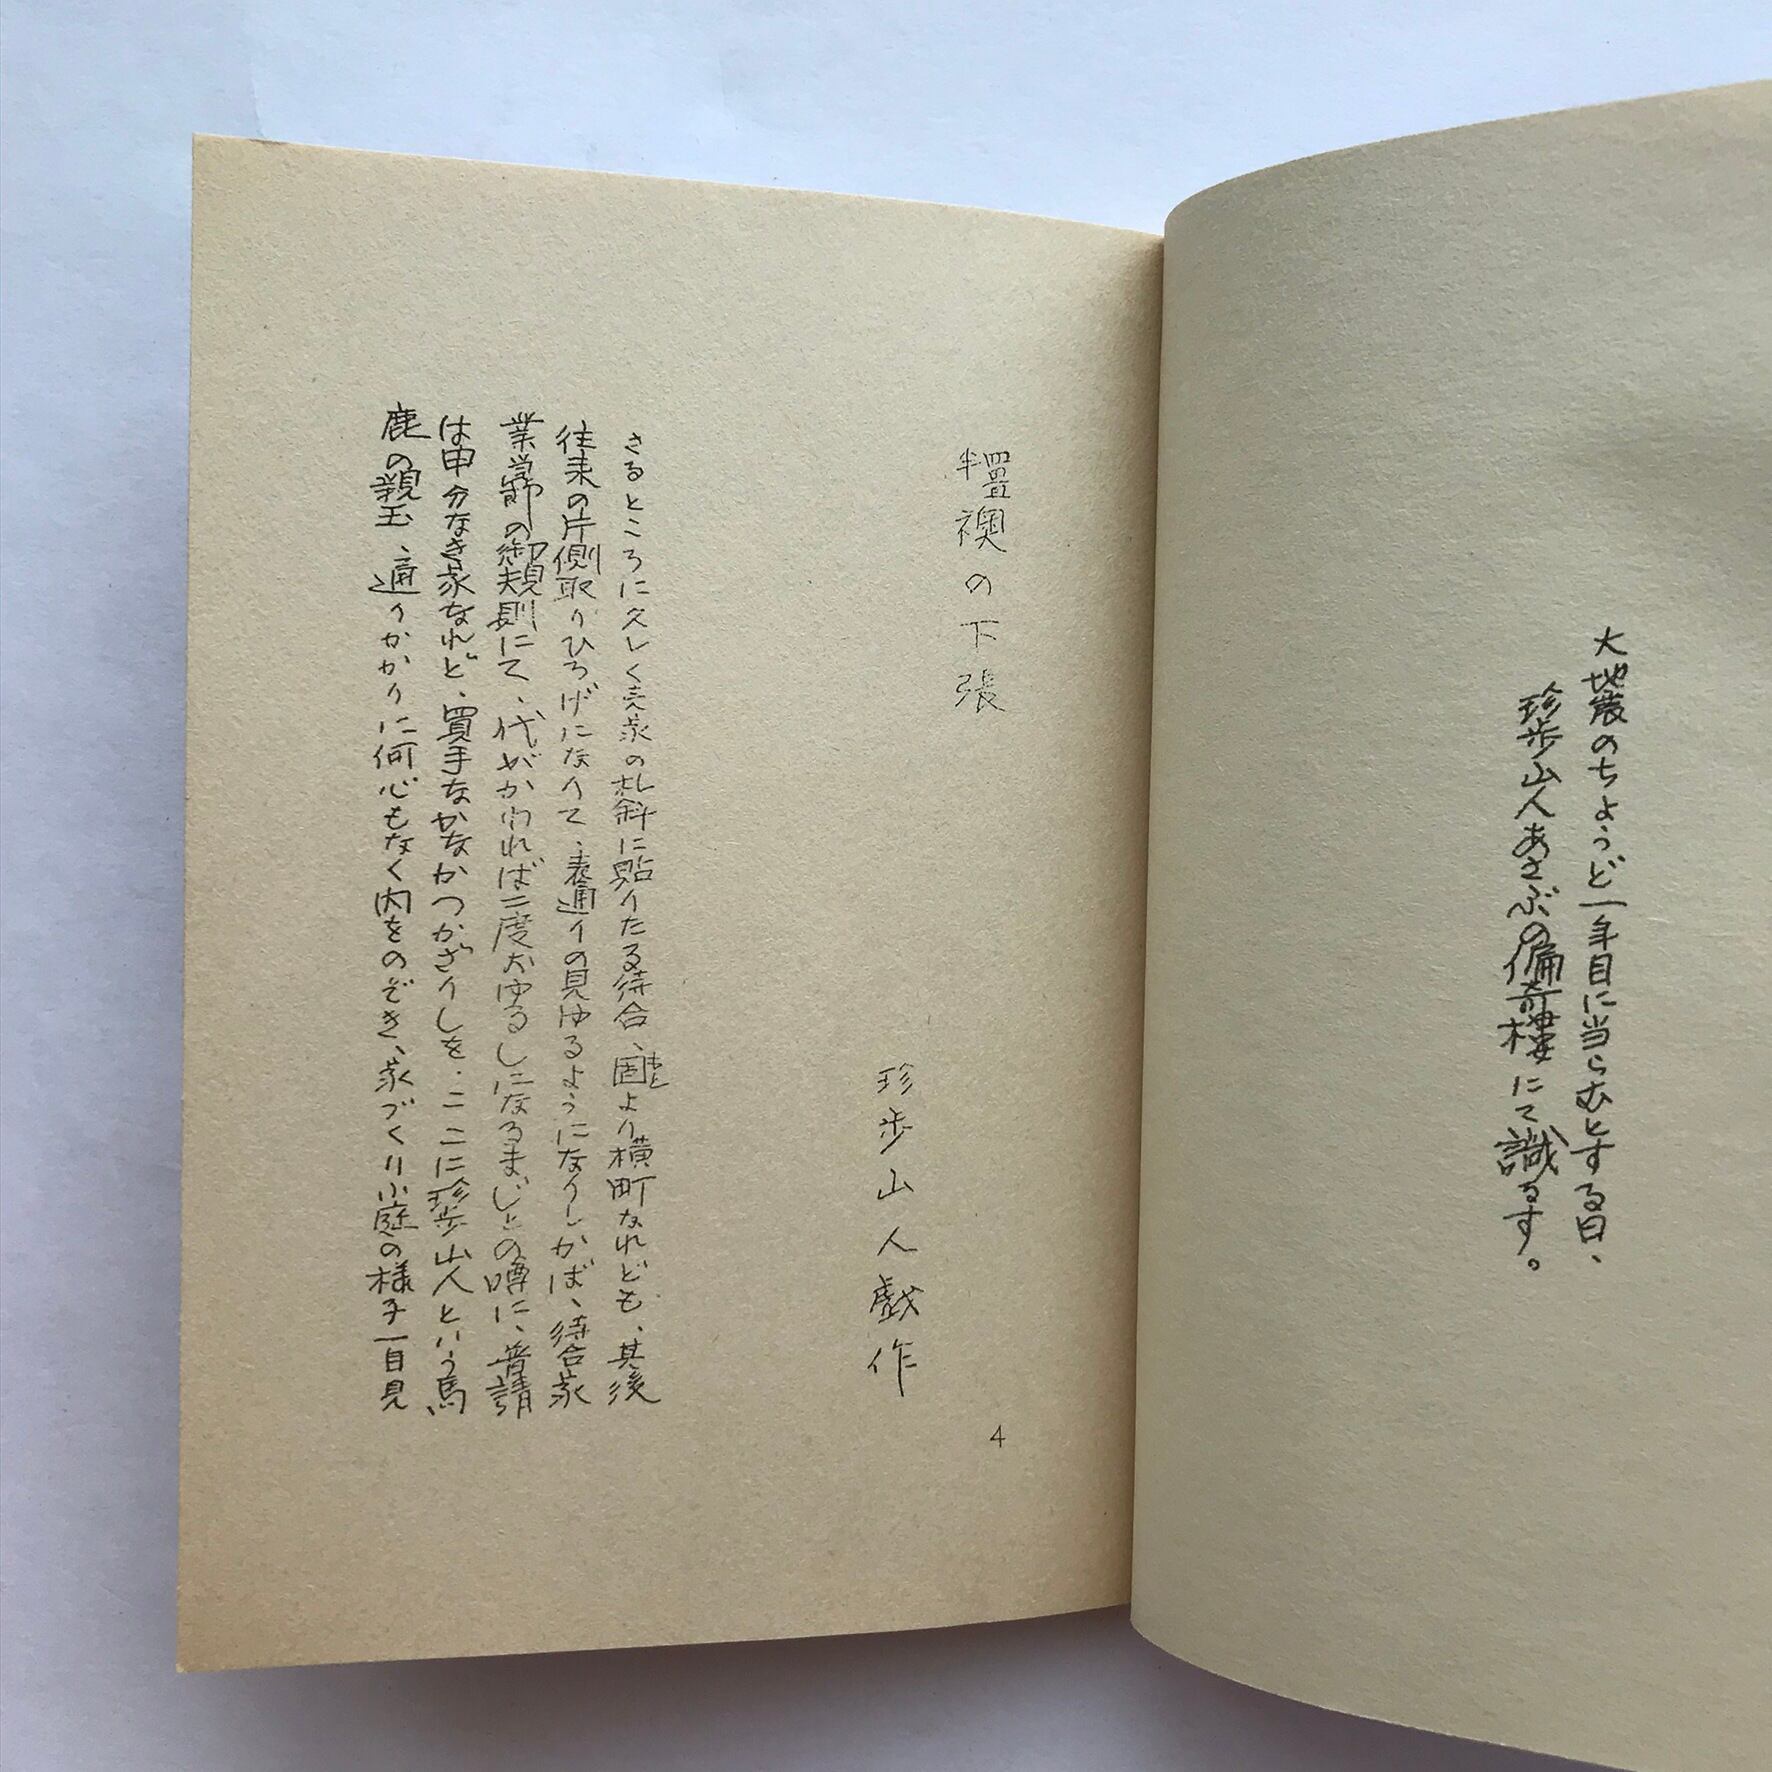 大地震のちょうど一年目に当らむとする日、
珍歩山人あさぶの偏奇楼にて識るす。
四畳半襖の下張
珍歩山人戯作
4
さるところに久しく売家の札斜に貼りたる待合、固より横町なれども、其後
もと
往来の片側取りひろげになりて、表通りの見ゆるようになりしかば、待合家
業当節の御規則にて、代がかわれば二度おゆるしになるまじとの噂に、普請
は申分なき家なれど、買手なかなかつがざりしを、ここに珍歩山人という馬
鹿の親玉、通りかかりに何心もなく内をのぞき、家づくり小庭の様子一目見